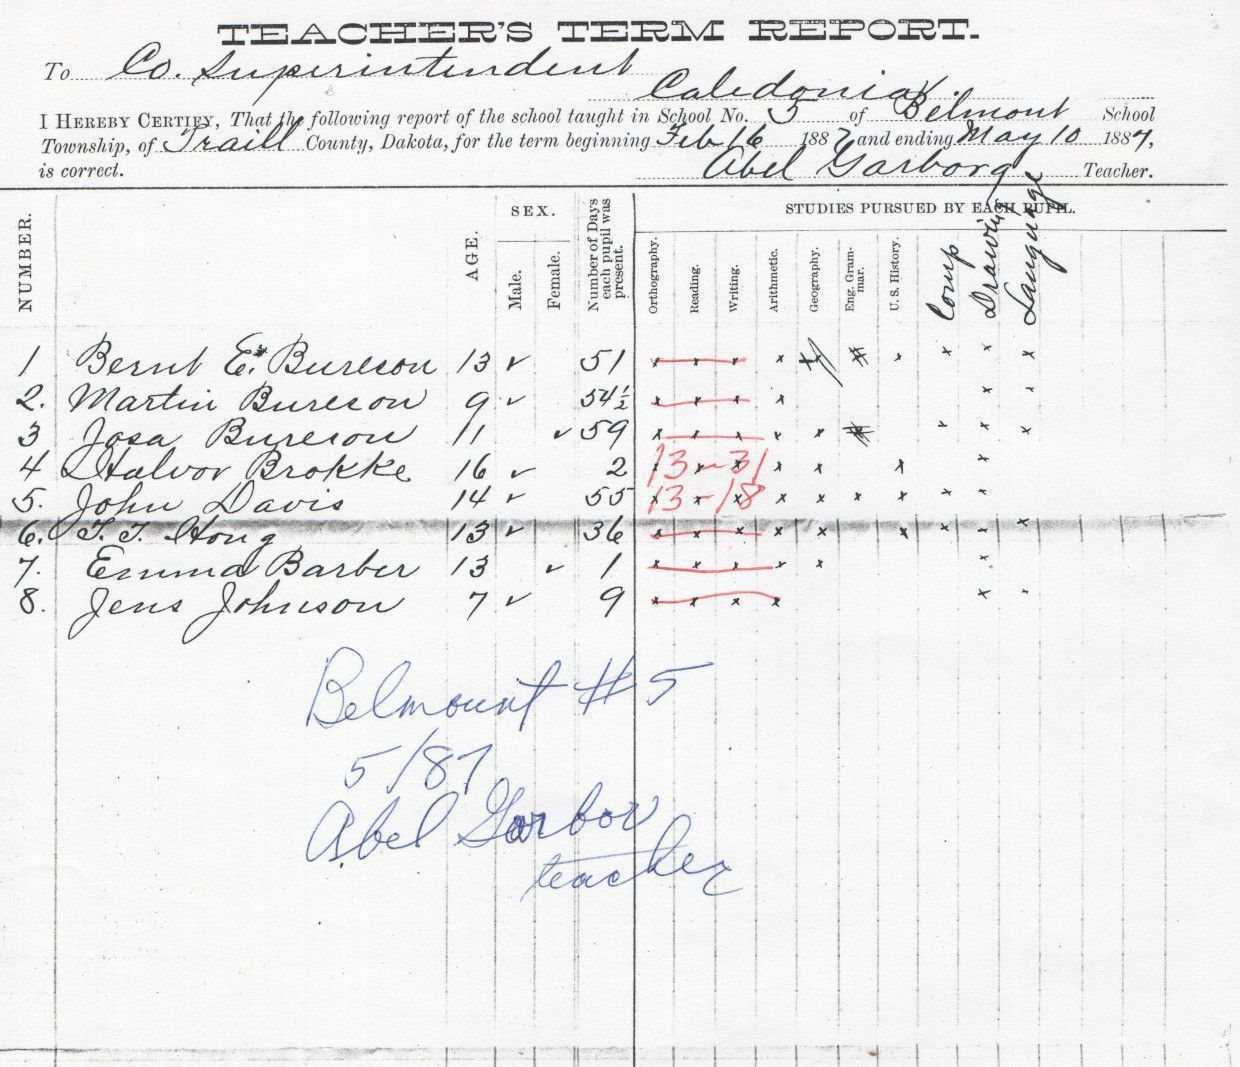 TEACHER'S TERM REPORT.
To Co. Superintendent
Caledonia
I HEREBY CERTIFY, That the following report of the school taught in School No. 5 of Belmont School
Township, of Traill County, Dakota, for the term beginning Feb 16 1887 and ending May 10 1887,
is correct. Abel Garborg Teacher.
NUMBER. AGE. SEX. Male. Female. Number of Days each pupil was present. STUDIES PURSUED BY EACH PUPIL.
Orthography. Reading. Writing. Arithmetic. Geography. Eng. Grammar. U.S. History. Comp Drawing Language
1 Bernt E. Bureson 13 ✓ 51 x x x x x x x x x x
2. Martin Bureson 9 ✓ 54½ x x x x x x
3 Josa Bureson 11 ✓ 59 x x x x x x x x x
4 Halvor Brokke 16 ✓ 2 x x x x x x x 13-31
5. John Davis 14 ✓ 55 x x x x x x x x x 13-18
6. T. T. Hong 13 ✓ 36 x x x x x x x x x
7. Emma Barber 13 ✓ 1 x x x x x x
8. Jens Johnson 7 ✓ 9 x x x x x x
Belmount #5
5/87
Abel Garbor
teacher